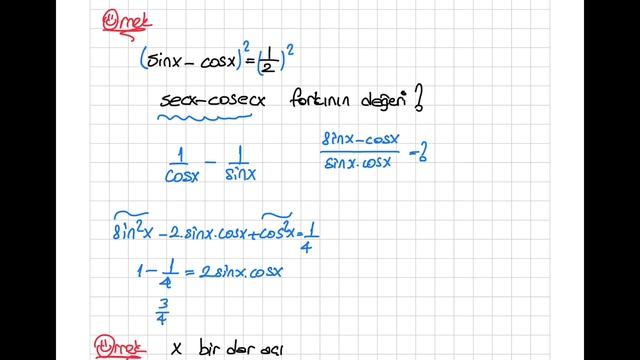 Örnek
(sinx - cosx)² = (1/2)²
secx-cosecx farkının değeri ?
1/cosx - 1/sinx
sinx-cosx/sinx.cosx = ?
sin²x - 2.sinx.cosx + cos²x = 1/4
1 - 1/4 = 2sinx.cosx
3/4
Örnek x bir dar açı